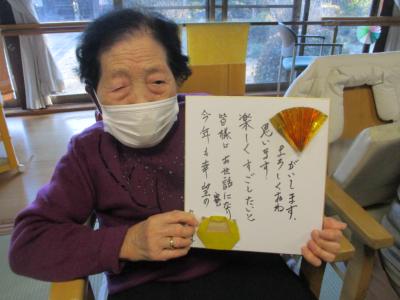 今年も幸望の
皆様に お世話になり
楽しくすごしたいと
思います!
よろしくおね
がいします。